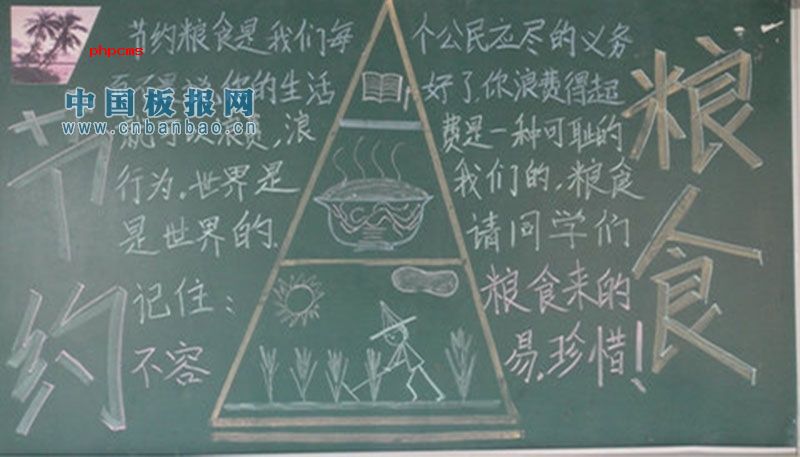 phpcms
中国板报网
www.cnbanbao.cn
节约
粮食
节约粮食是我们每个公民应尽的义务
你的生活好了,你浪费得起
浪费,浪费是一种可耻的
行为。世界是我们的,粮食
是世界的.请同学们
记住:粮食来的
不容易,珍惜!